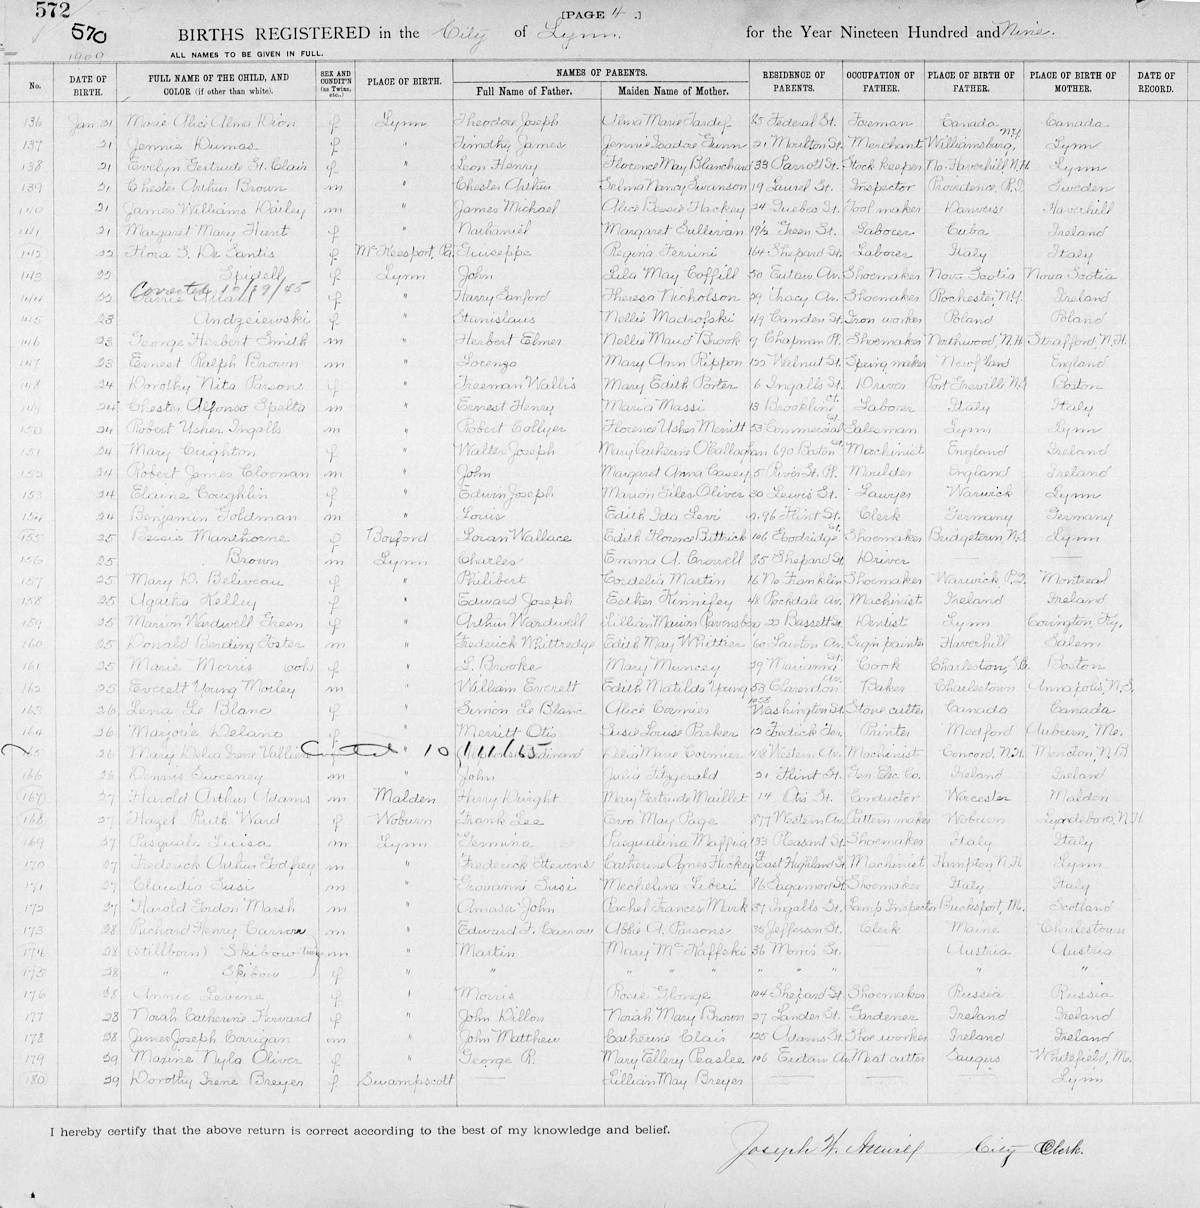 572
570
1909
[PAGE 4.]
BIRTHS REGISTERED in the City of Lynn. for the Year Nineteen Hundred and Nine.
ALL NAMES TO BE GIVEN IN FULL.
No. DATE OF BIRTH. FULL NAME OF THE CHILD, AND COLOR (if other than white). SEX AND CONDIT'N (as Twins, etc.,) PLACE OF BIRTH. NAMES OF PARENTS. Full Name of Father. Maiden Name of Mother. RESIDENCE OF PARENTS. OCCUPATION OF FATHER. PLACE OF BIRTH OF FATHER. PLACE OF BIRTH OF MOTHER. DATE OF RECORD.
136 Jan. 21 Marie Alice Alma Dion f Lynn Theodore Joseph Alma Marie 85 Federal St. Foreman Canada Canada
137 21 Jennie Dumas f " Timothy James Jennie Isadore Gunn 21 Moulton St. Merchant Williamsburg, N.Y. Lynn
138 21 Evelyn Gertrude St. Clair f " Leon Henry Florence May Blanchard 33 Parrott St. Stock keeper No. Haverhill, N.H. Lynn
139 21 Chester Arthur Brown m " Chester Arthur Selma Nancy Swanson 19 Laurel St. Inspector Providence, R.I. Sweden
140 21 James Williams Dailey m " James Michael Alice Bessie Hackey 24 Quebec St. Tool maker Danvers Haverhill
141 21 Margaret Mary Hunt f " Nathaniel Margaret Sullivan 19½ Green St. Laborer Cuba Ireland
142 22 Flora S. De Santis f McKeesport, Pa. Guiseppe Regina Ferrini 164 Shepard St. Laborer Italy Italy
143 22 Spidell f Lynn John Lila May Coffill 50 Eutaw Av. Shoemaker Nova Scotia Nova Scotia
Corrected 10/29/45
144 22 f " Harry Sanford Theresa Nicholson 29 Tracy Av. Shoemaker Rochester, N.Y. Ireland
145 23 Andzeiewski f " Stanislaus Nellie Madrofski 49 Camden St. Iron worker Poland Poland
146 23 George Herbert Smith m " Herbert Elmer Nellie Maud Brook 9 Chapman Pl. Shoemaker Northwood, N.H. Strafford, N.H.
147 23 Ernest Ralph Brown m " Lorenzo Mary Ann Rippon 122 Walnut St. Spring maker Newf'land England
148 24 Dorothy Nita Parsons f " Freeman Wallis Mary Edith Porter 6 Ingalls St. Driver Boston
149 24 Chester Alfonso Spelta m " Ernest Henry Maria Massi 13 Brookline St. Laborer Italy Italy
150 24 Robert Usher Ingalls m " Robert Collyer Florence Usher Merritt 53 Commercial St. Salesman Lynn Lynn
151 24 Mary Crighton f " Walter Joseph Mary Catherine O'Callaghan 690 Boston St. Machinist England Ireland
152 24 Robert James Cloonan m " John Margaret Anna Casey 5 Pl. Moulder England Ireland
153 24 Elaine Coughlin f " Edwin Joseph Marion Giles Oliver 20 Lewis St. Lawyer Warwick Lynn
154 24 Benjamin Goldman m " Louis Edith Ida Levi r. 96 Flint St. Clerk Germany Germany
155 25 Bessie Manthorne f Boxford Loran Wallace Edith Florence Bittrick 106 Goodridge St. Shoemaker Lynn
156 25 Brown m Lynn Charles Emma A. Crowell 85 Shepard St. Driver
157 25 Mary D. Beliveau f " Philibert Cordelia Martin 16 No. Franklin Shoemaker Warwick R.I. Montreal
158 25 Agatha Kelley f " Edward Joseph Esther Kinnifey 48 Rockdale Av. Machinist Ireland Ireland
159 25 Marion Wardwell Green f " Arthur Wardwell Lillian Marion 20 Bassett St. Dentist Lynn Covington, Ky.
160 25 Donald Bending Foster m " Frederick Whittredge Edith May Whittier 60 Lawton Av. Sign painter Haverhill Salem
161 25 Marie Morris (col) f " L. Brooke Mary Muncey 29 Marianna St. Cook Charleston, Boston
162 25 Everett Young Morley m " William Everett Edith Matilda Young 53 Clarendon Av. Baker Charlestown Annapolis, N.S.
163 26 Lena Le Blanc f " Simon Le Blanc Alice Cormier Washington St. Stone cutter Canada Canada
164 26 Marjorie Delano f " Merritt Otis Susie Louise Parker 12 Frederick Ter. Printer Medford Auburn, Me.
26 Mary Delia Irene 10/11/65 Ferdinand Delia Marie Cormier 48 Western Av. Machinist Concord, N.H. Moncton, N.B.
166 26 Dennis Sweeney m " John Julia Fitzgerald 21 Flint St. Gen. Elec. Co. Ireland Ireland
167 27 Harold Arthur Adams m Malden Harry Dwight Mary Gertrude Maillet 14 Otis St. Conductor Worcester Malden
168 27 Hazel Ruth Ward f Woburn Frank Lee Eva May Page 877 Western Av. Pattern maker Woburn Lyndeboro, N.H.
169 27 Pasquale Luisa m Lynn Germina Pasqualina Maffia 133 Pleasant St. Shoemaker Italy Italy
170 27 Frederick Arthur Godfrey m " Frederick Stevens Catherine Agnes Hickey 19 East Highland St. Machinist Hampton, N.H. Lynn
171 27 Claudia Susi m " Giovanni Susi Mechelina Liberi 86 Sagamore St. Shoemaker Italy Italy
172 27 Harold Gordon Marsh m " Amasa John Rachel Frances Mark 37 Ingalls St. Lamp Inspector Bucksport, Me. Scotland
173 28 Richard Henry Carrow m " Edward F. Carrow Abbie A. Parsons 35 Jefferson St. Clerk Maine Charlestown
174 28 (stillborn) Skibow twins m " Martin Mary McKaffski 36 Monis St. Austria Austria
175 28 " Skibow f " " " " " " " " " "
176 28 Annie Levine f " Morris Rosie Glonge 104 Shepard St. Shoemaker Russia Russia
177 28 Norah Catherine Kerward f " John Dillon Norah Mary Brown 27 Lander St. Gardener Ireland Ireland
178 28 James Joseph Corrigan m " John Matthew Catherine Clair 125 Adams St. Shoe worker Ireland Ireland
179 29 Maxine Nyla Oliver f " George R. Mary Ellery Peaslee 106 Eutaw Av. Meat cutter Saugus Whitefield, Me.
180 29 Dorothy Irene Breyer f Swampscott Lillian May Breyer Lynn
I hereby certify that the above return is correct according to the best of my knowledge and belief.
Joseph W. Attwill City Clerk.